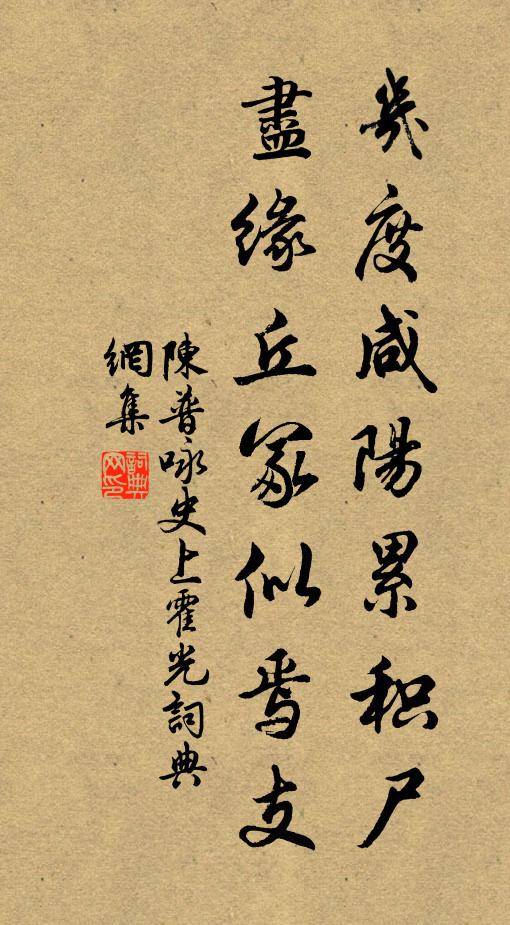 幾度咸陽累积尸
盡緣丘冢似焉支
陳普咏史上霍光詞典
網集
詞典网印